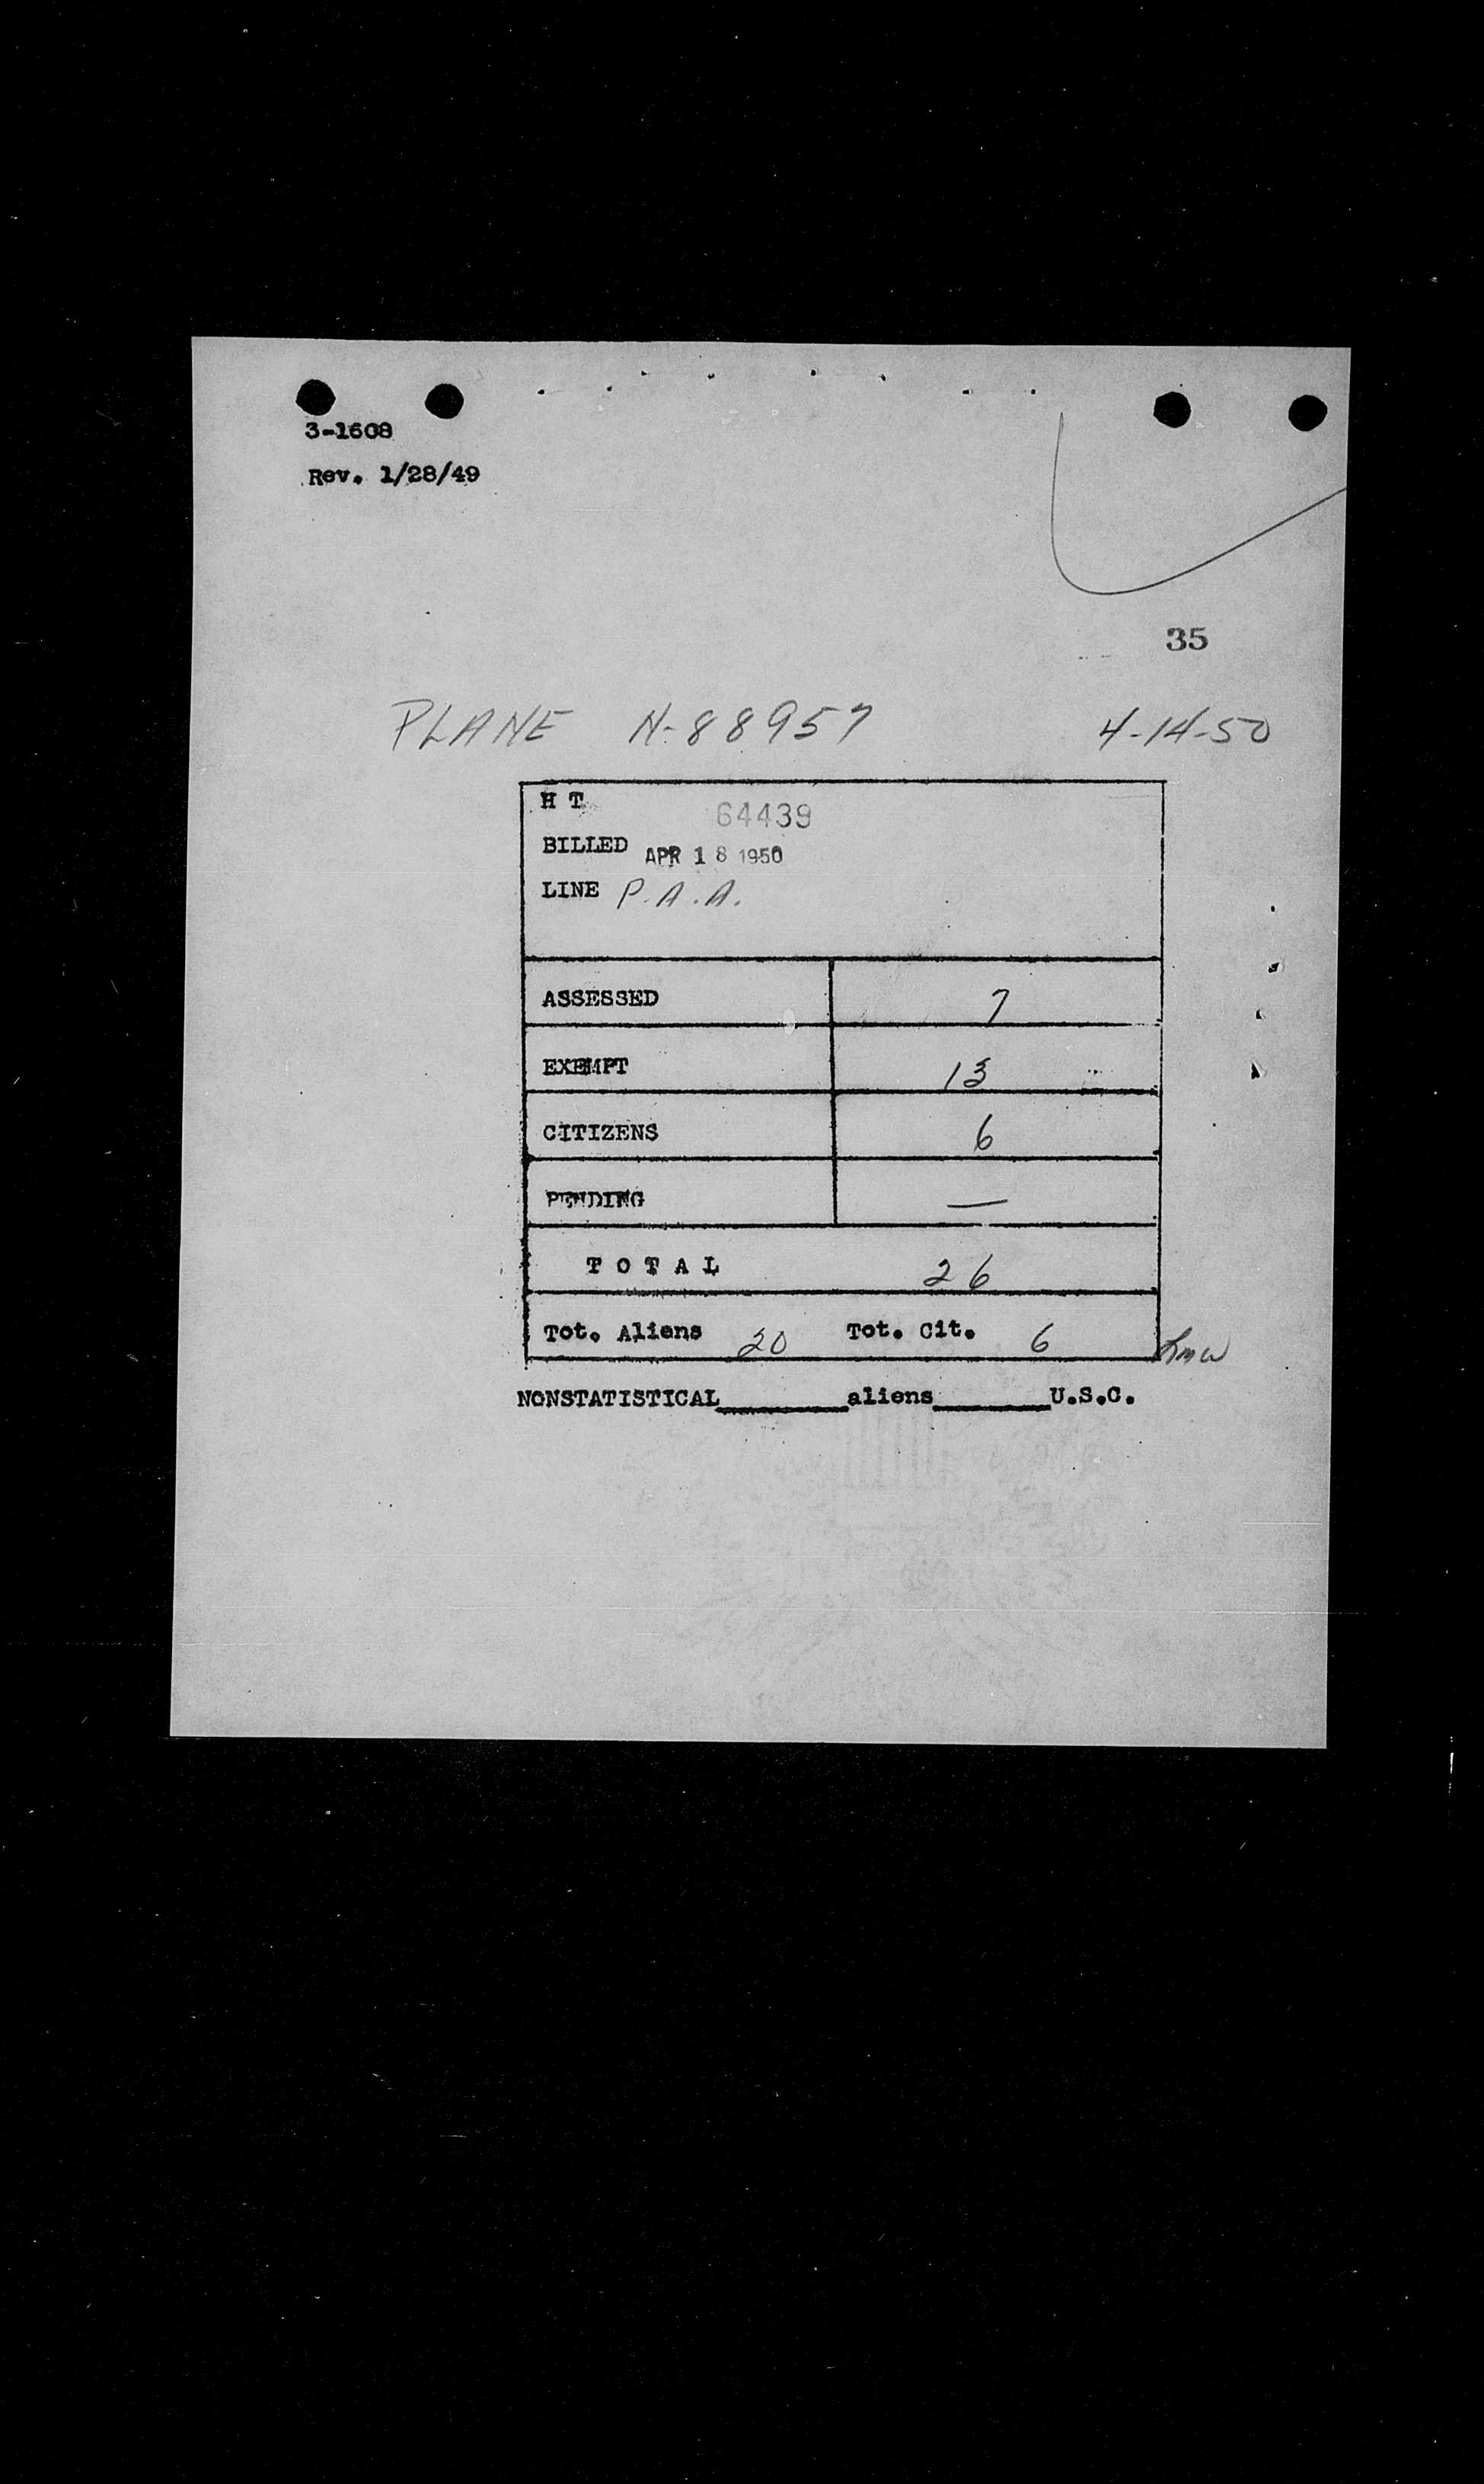 3-1608
Rev. 1/28/49
35
PLANE N-88957 4-14-50
H T 64439
BILLED APR 18 1950
LINE P.A.A.
ASSESSED 7
EXEMPT 13
CITIZENS 6
PENDING —
TOTAL 26
Tot. Aliens 20 Tot. Cit. 6
NONSTATISTICAL________aliens________U.S.C.